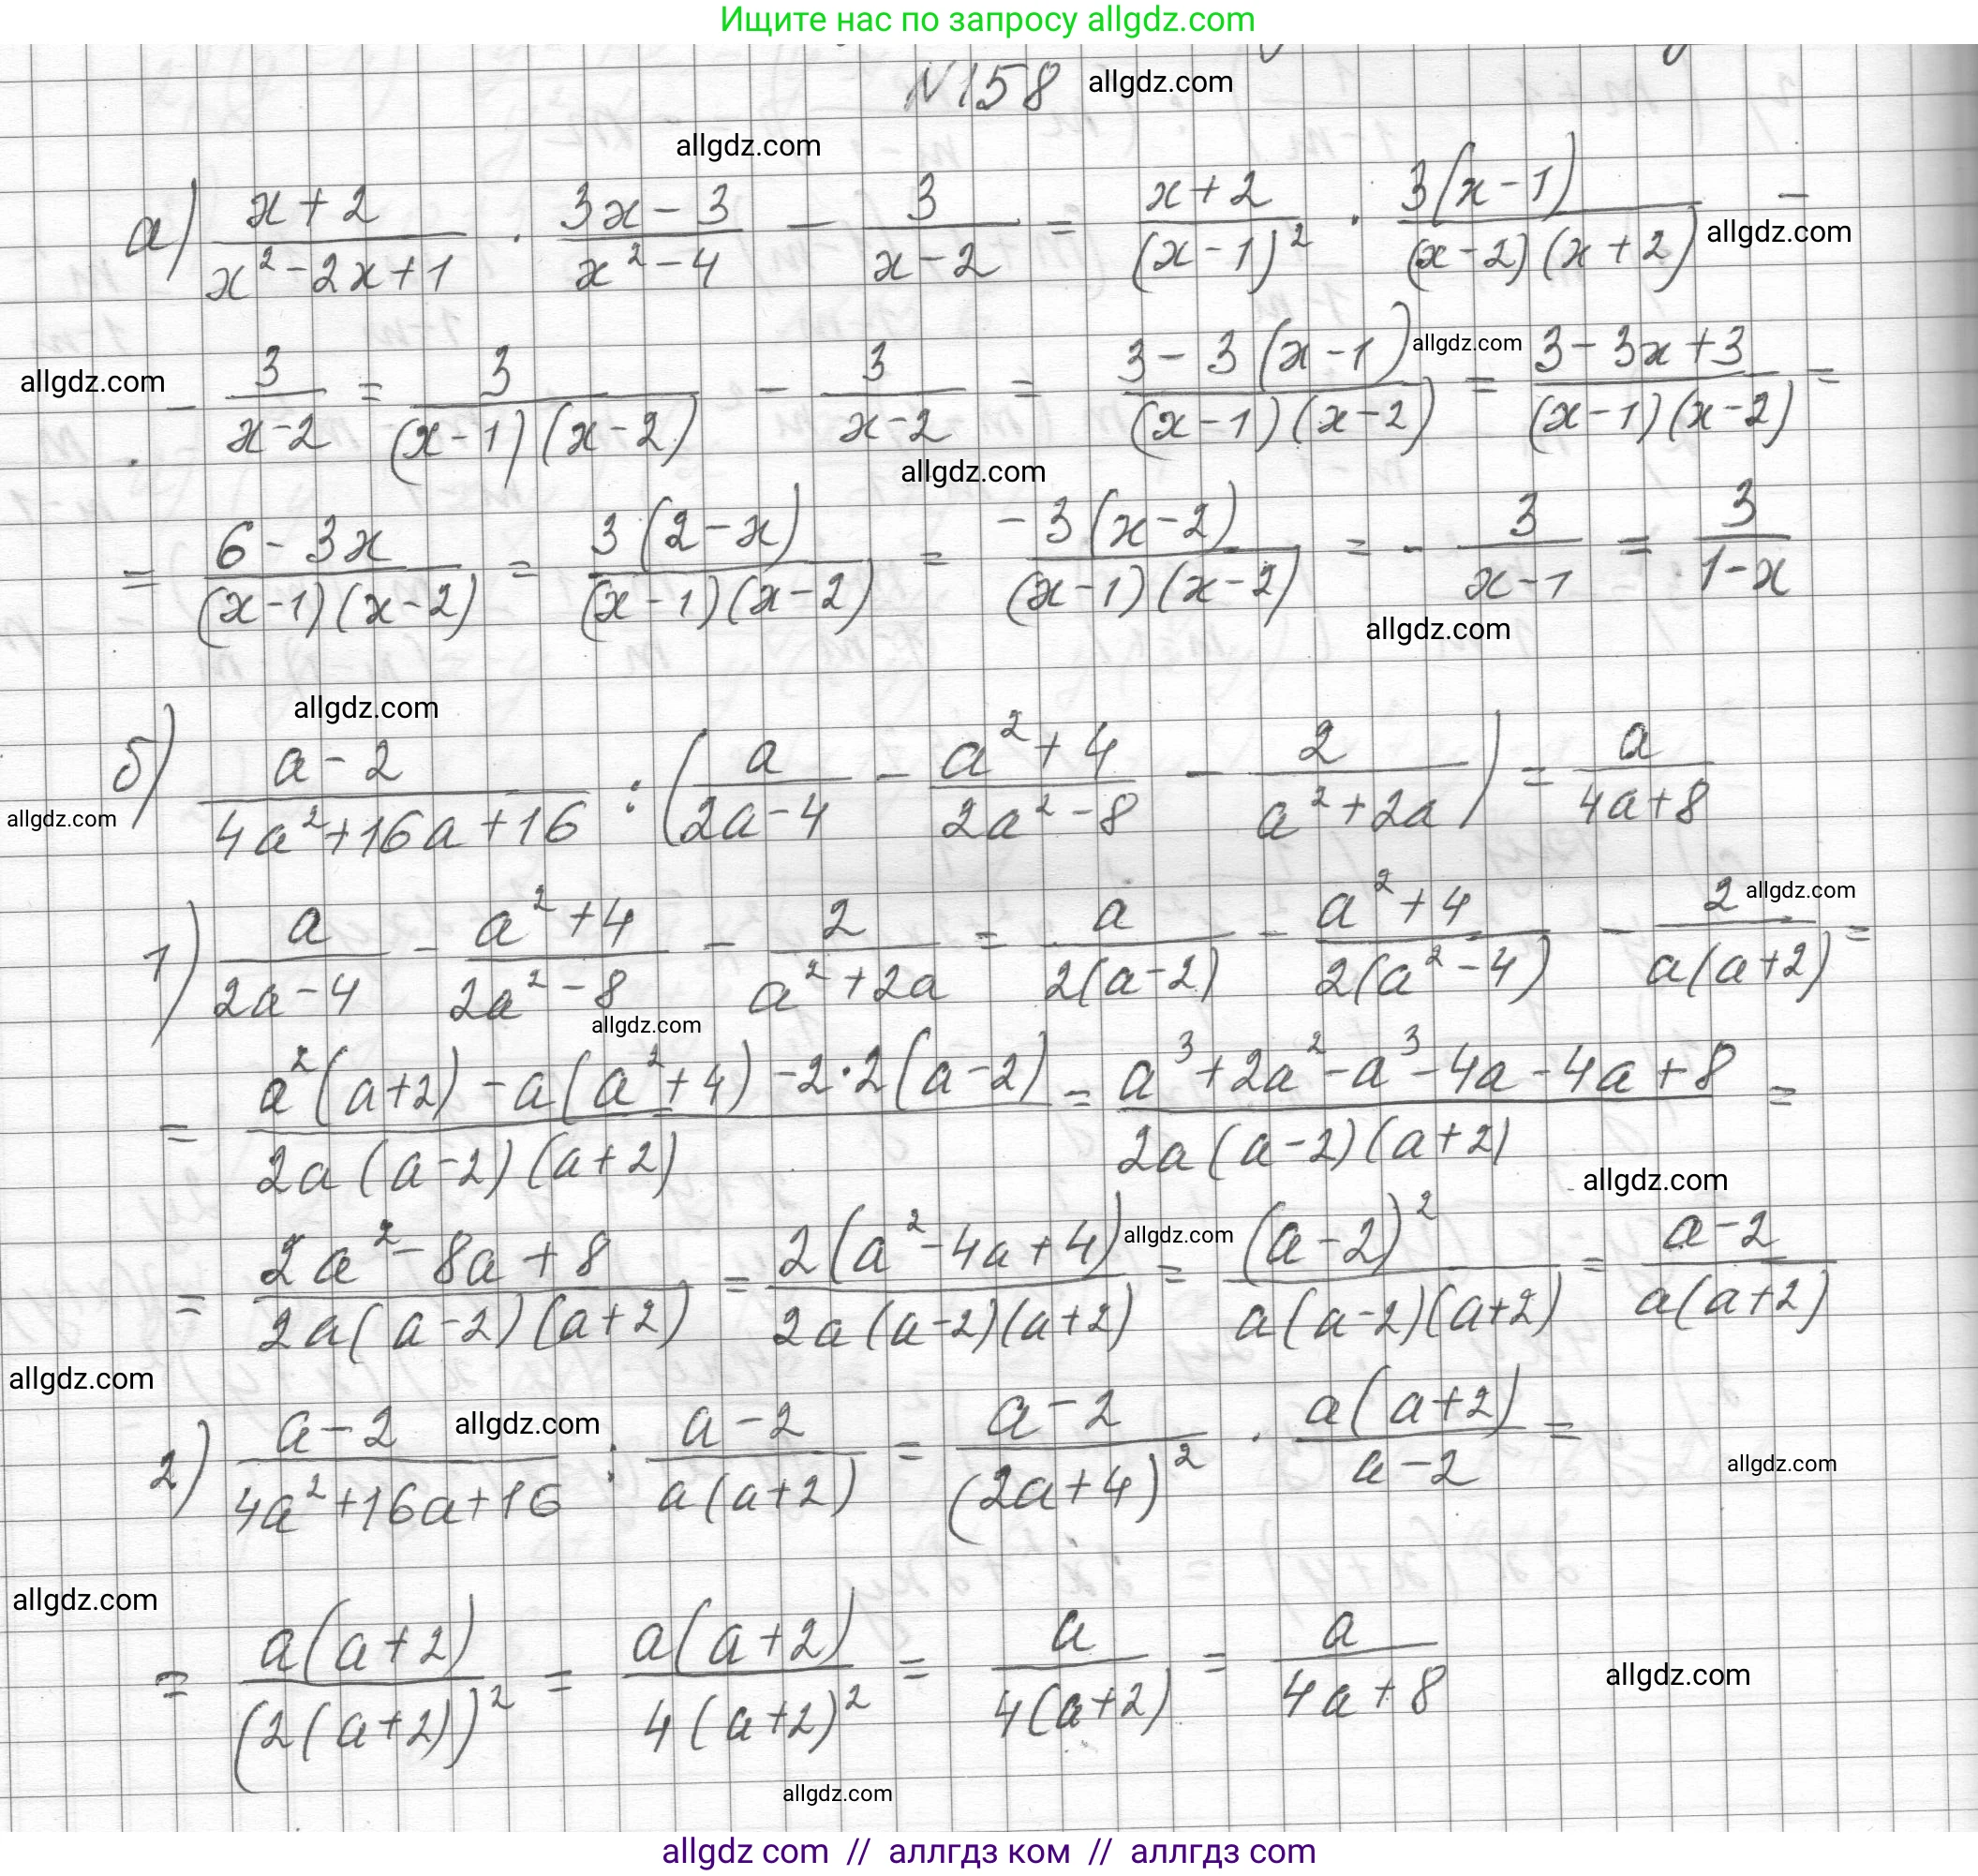 Ищите нас по запросу allgdz.com
N158 allgdz.com
allgdz.com
а) (x+2)/(x²-2x+1) · (3x-3)/(x²-4) - 3/(x-2) = (x+2)/(x-1)² · 3(x-1)/((x-2)(x+2)) - allgdz.com
allgdz.com - 3/(x-2) = 3/((x-1)(x-2)) - 3/(x-2) = (3-3(x-1))/((x-1)(x-2)) allgdz.com = (3-3x+3)/((x-1)(x-2)) =
allgdz.com
= (6-3x)/((x-1)(x-2)) = 3(2-x)/((x-1)(x-2)) = -3(x-2)/((x-1)(x-2)) = - 3/(x-1) = 3/(1-x)
allgdz.com
allgdz.com
б) (a-2)/(4a²+16a+16) : (a/(2a-4) - (a²+4)/(2a²-8) - 2/(a²+2a)) = a/(4a+8)
allgdz.com
1) a/(2a-4) - (a²+4)/(2a²-8) - 2/(a²+2a) = a/(2(a-2)) - (a²+4)/(2(a²-4)) - 2/(a(a+2)) = allgdz.com
allgdz.com
= (a²(a+2)-a(a²+4)-2·2(a-2))/(2a(a-2)(a+2)) = (a³+2a²-a³-4a-4a+8)/(2a(a-2)(a+2)) =
allgdz.com
= (2a²-8a+8)/(2a(a-2)(a+2)) = 2(a²-4a+4)/(2a(a-2)(a+2)) allgdz.com = (a-2)²/(a(a-2)(a+2)) = (a-2)/(a(a+2))
allgdz.com
2) (a-2)/(4a²+16a+16) allgdz.com : (a-2)/(a(a+2)) = (a-2)/(2a+4)² · a(a+2)/(a-2) =
allgdz.com
allgdz.com
= a(a+2)/(2(a+2))² = a(a+2)/(4(a+2)²) = a/(4(a+2)) = a/(4a+8) allgdz.com
allgdz.com
allgdz com // аллгдз ком // аллгдз com